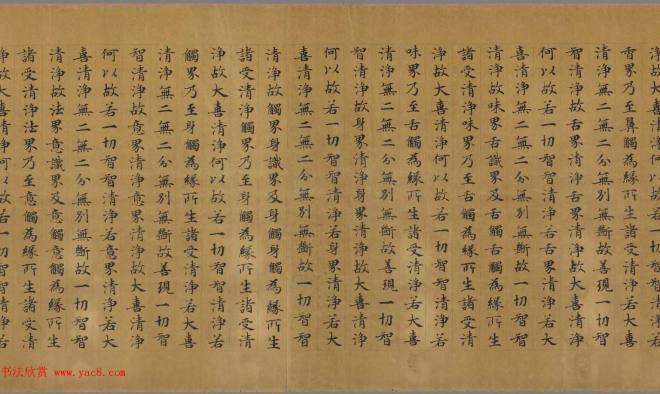 淨故大喜清淨何以故若一切智智清淨若
香界乃至鼻觸為緣所生諸受清淨若大喜
清淨無二無二分無別無斷故善現一切智
智清淨故舌界清淨舌界清淨故大喜清淨
何以故若一切智智清淨若舌界清淨若大
喜清淨無二無二分無別無斷故一切智智
清淨故味界舌識界及舌觸舌觸為緣所生
諸受清淨味界乃至舌觸為緣所生諸受清
淨故大喜清淨何以故若一切智智清淨若
味界乃至舌觸為緣所生諸受清淨若大喜
清淨無二無二分無別無斷故善現一切智
智清淨故身界清淨身界清淨故大喜清淨
何以故若一切智智清淨若身界清淨若大
喜清淨無二無二分無別無斷故一切智智
清淨故觸界身識界及身觸身觸為緣所生
諸受清淨觸界乃至身觸為緣所生諸受清
淨故大喜清淨何以故若一切智智清淨若
觸界乃至身觸為緣所生諸受清淨若大喜
清淨無二無二分無別無斷故善現一切智
智清淨故意界清淨意界清淨故大喜清淨
何以故若一切智智清淨若意界清淨若大
喜清淨無二無二分無別無斷故一切智智
清淨故法界意識界及意觸意觸為緣所生
諸受清淨法界乃至意觸為緣所生諸受清
淨故大喜清淨何以故若一切智智清淨若
书法欣赏 www.yac8.com